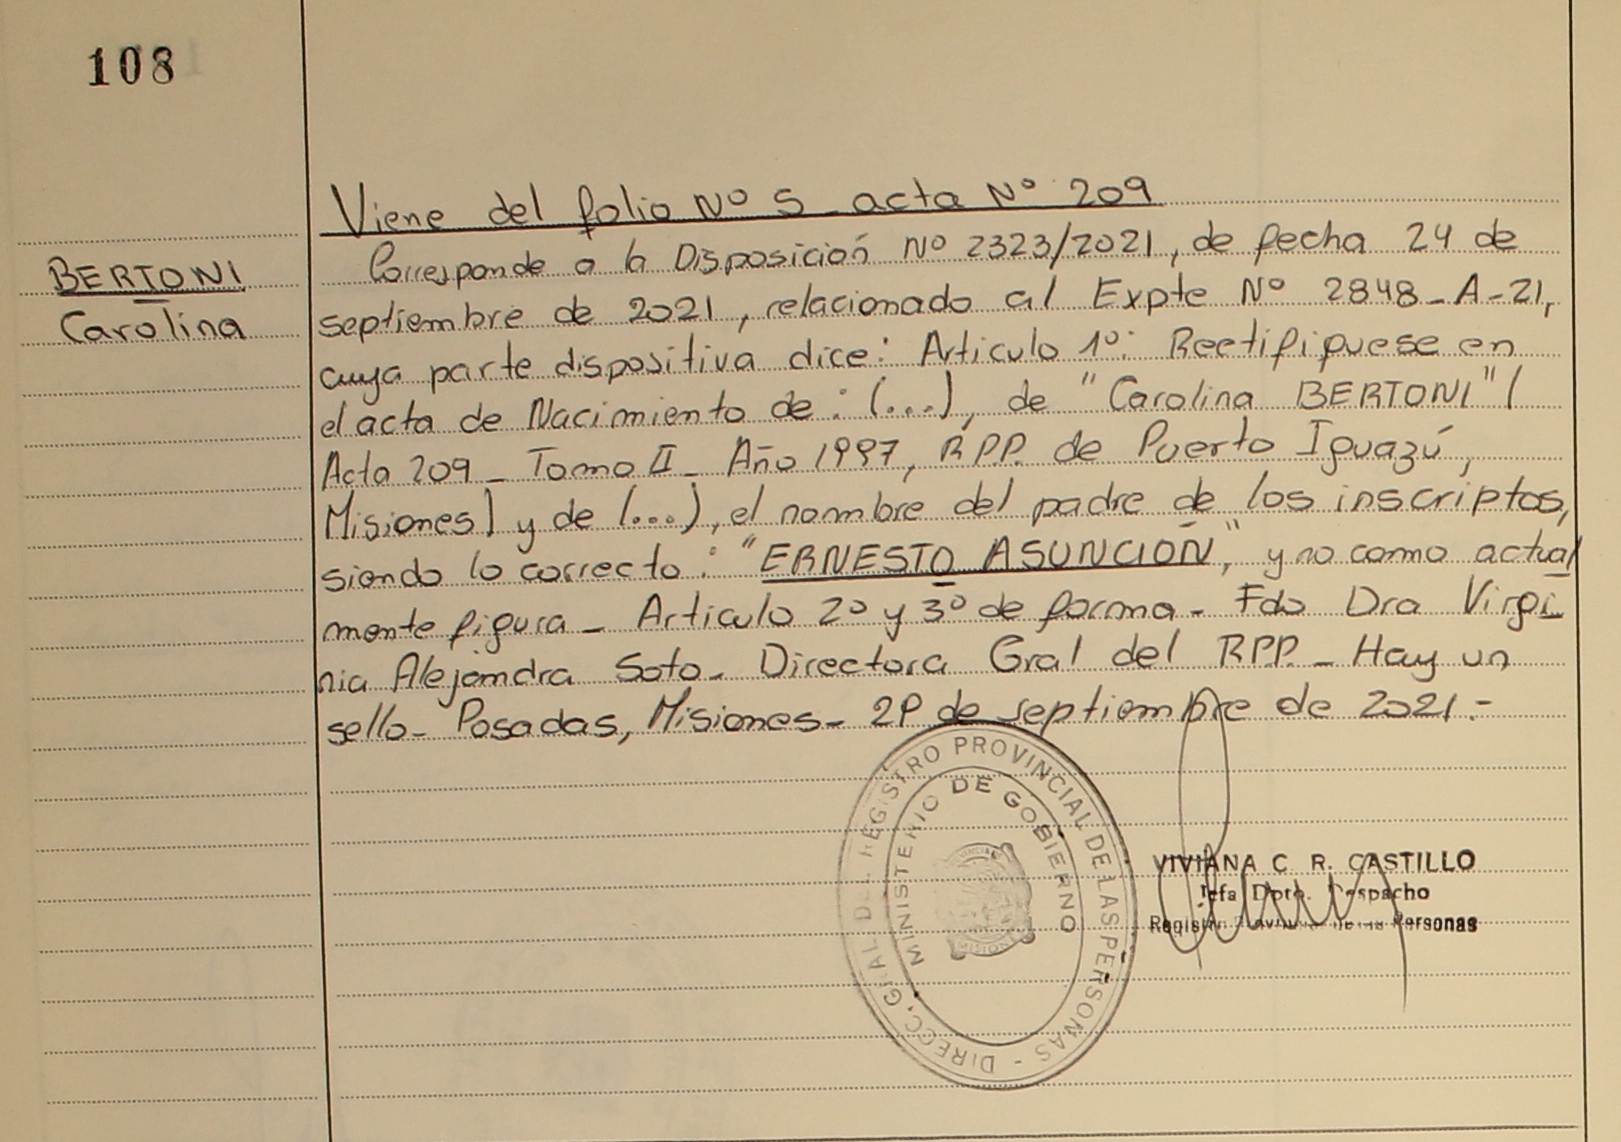 108
Viene del folio Nº 5 acta Nº 209
BERTONI
Carolina
Corresponde a la Disposición Nº 2323/2021, de fecha 24 de
septiembre de 2021, relacionado al Expte Nº 2848-A-21,
cuya parte dispositiva dice: Articulo 1º: Rectifiquese en
el acta de Nacimiento de: (...), de "Carolina BERTONI" (
Acta 209 - Tomo II - Año 1997, RPP. de Puerto Iguazú,
Misiones) y de (...), el nombre del padre de los inscriptos,
siendo lo correcto: "ERNESTO ASUNCION", y no como actual
mente figura - Articulo 2º y 3º de forma - Fdo Dra Virgi
nia Alejandra Soto - Directora Gral del RPP. - Hay un
sello - Posadas, Misiones - de septiembre de 2021.-
DIRECC. GRAL DEL REGISTRO PROVINCIAL DE LAS PERSONAS -
MINISTERIO DE GOBIERNO
MISIONES
VIVIANA C. R. CASTILLO
Jefa Dpto. Despacho
Personas